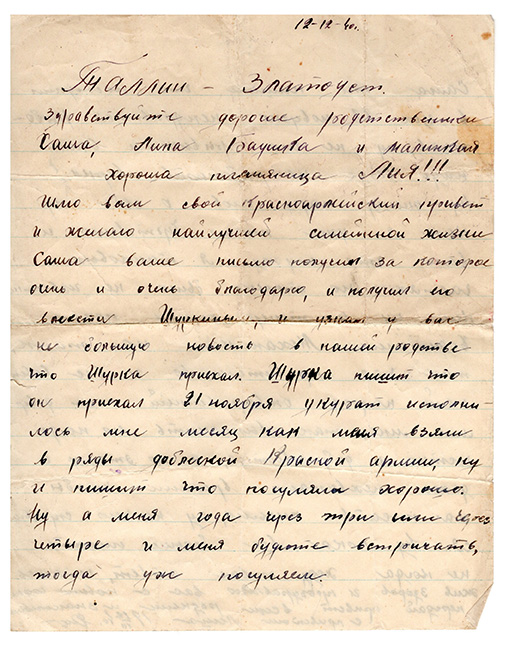 12-12-40г.
Таллин - Златоуст.
Здравствуйте дорогие родственники
Саша, Липа Бабушка и маленькая
хороша племяница Лия!!!
Шлю вам свой Красноармейский привет
и желаю найлучшей семейной жизни
Саша ваше письмо получил за которое
очень и очень благодарю, и получил его
вмести Шуркиным, и узнал у вас
не большую новость в нашей родстве
что Шурка приехал. Шурка пишит что
он приехал 21 ноября укурат исполни
лось мне месяц как меня взяли
в ряды доблеской Красной армии, ну
и пишит что погуляла хорошо.
Ну а меня года через три или через
четыре и меня будите встричать,
тогда уж погуляем.